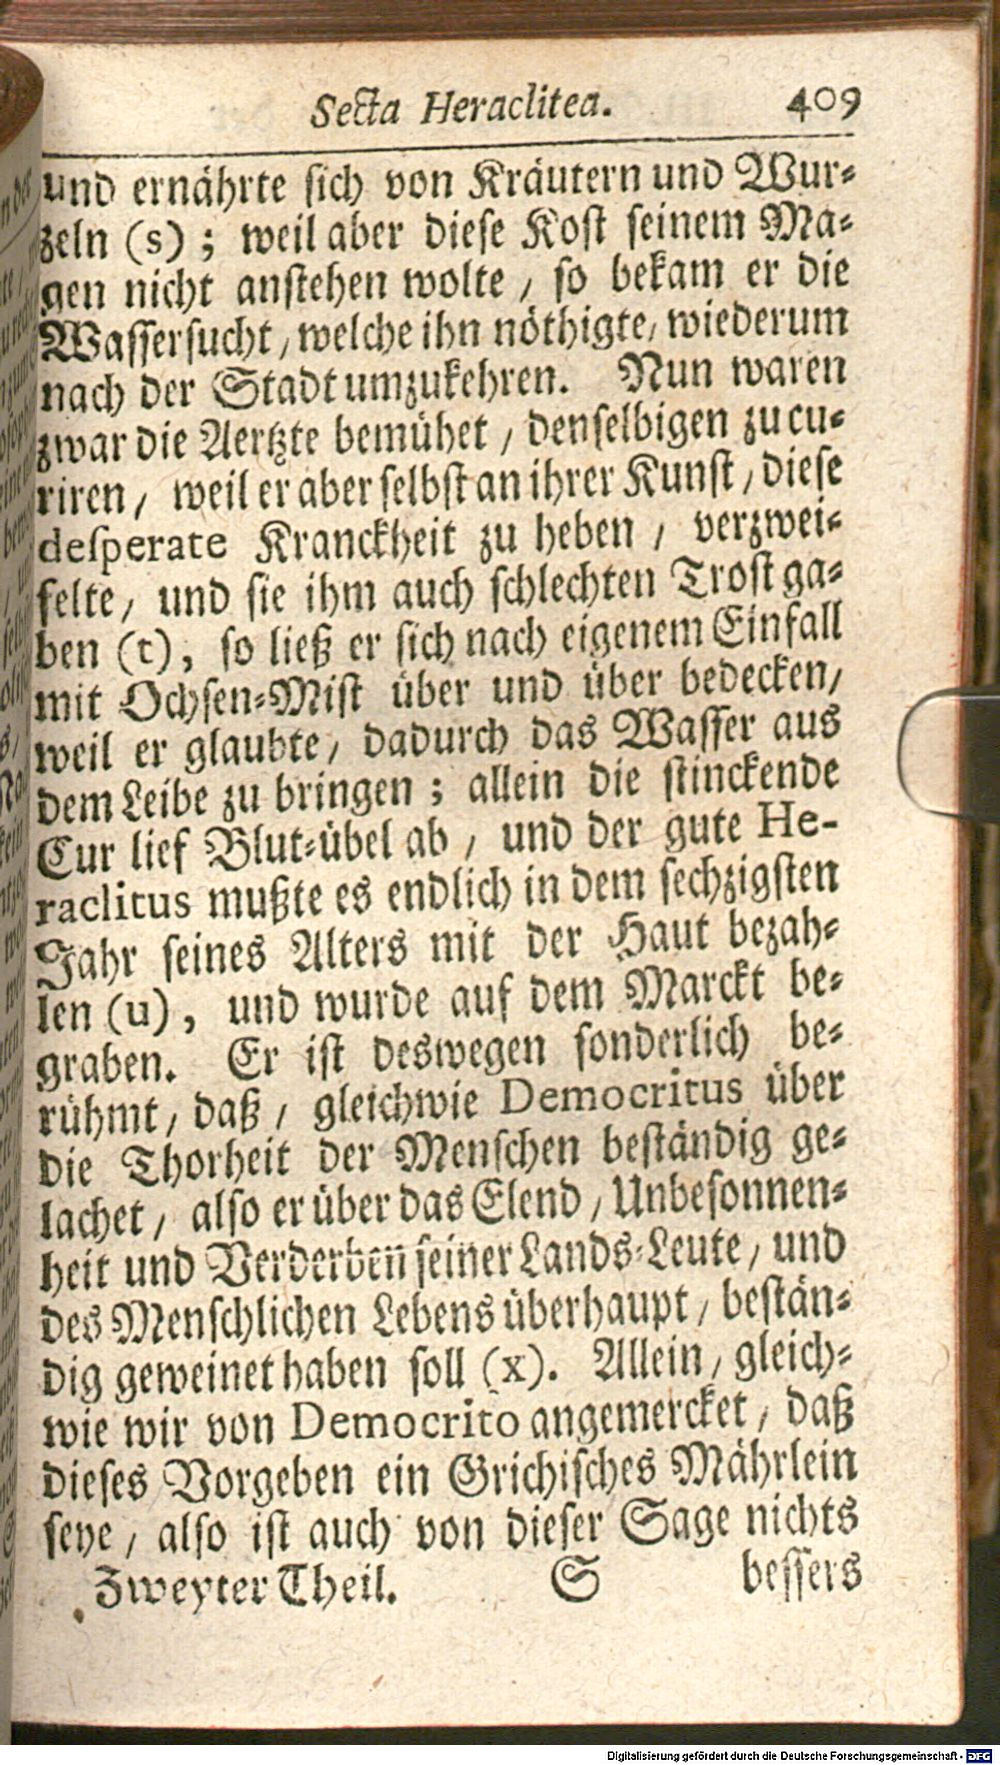 Secta Heraclitea. 409
und ernährte sich von Kräutern und Wur-
zeln (s) ; weil aber diese Kost seinem Ma-
gen nicht anstehen wolte / so bekam er die
Wassersucht / welche ihn nöthigte / wiederum
nach der Stadt umzukehren. Nun waren
zwar die Aertzte bemühet / denselbigen zu cu-
riren / weil er aber selbst an ihrer Kunst / diese
desperate Kranckheit zu heben / verzwei-
felte / und sie ihm auch schlechten Trost ga-
ben (t), so ließ er sich nach eigenem Einfall
mit Ochsen-Mist über und über bedecken /
weil er glaubte / dadurch das Wasser aus
dem Leibe zu bringen ; allein die stinckende
Cur lief Blut-übel ab / und der gute He-
raclitus mußte es endlich in dem sechzigsten
Jahr seines Alters mit der Haut bezah-
len (u), und wurde auf dem Marckt be-
graben. Er ist deswegen sonderlich be-
rühmt / daß / gleichwie Democritus über
die Thorheit der Menschen beständig ge-
lachet / also er über das Elend / Unbesonnen-
heit und Verderben seiner Lands-Leute / und
des Menschlichen Lebens überhaupt / bestän-
dig geweinet haben soll (x). Allein / gleich-
wie wir von Democrito angemercket / daß
dieses Vorgeben ein Grichisches Mährlein
seye / also ist auch von dieser Sage nichts
Zweyter Theil. S bessers
Digitalisierung gefördert durch die Deutsche Forschungsgemeinschaft - DFG